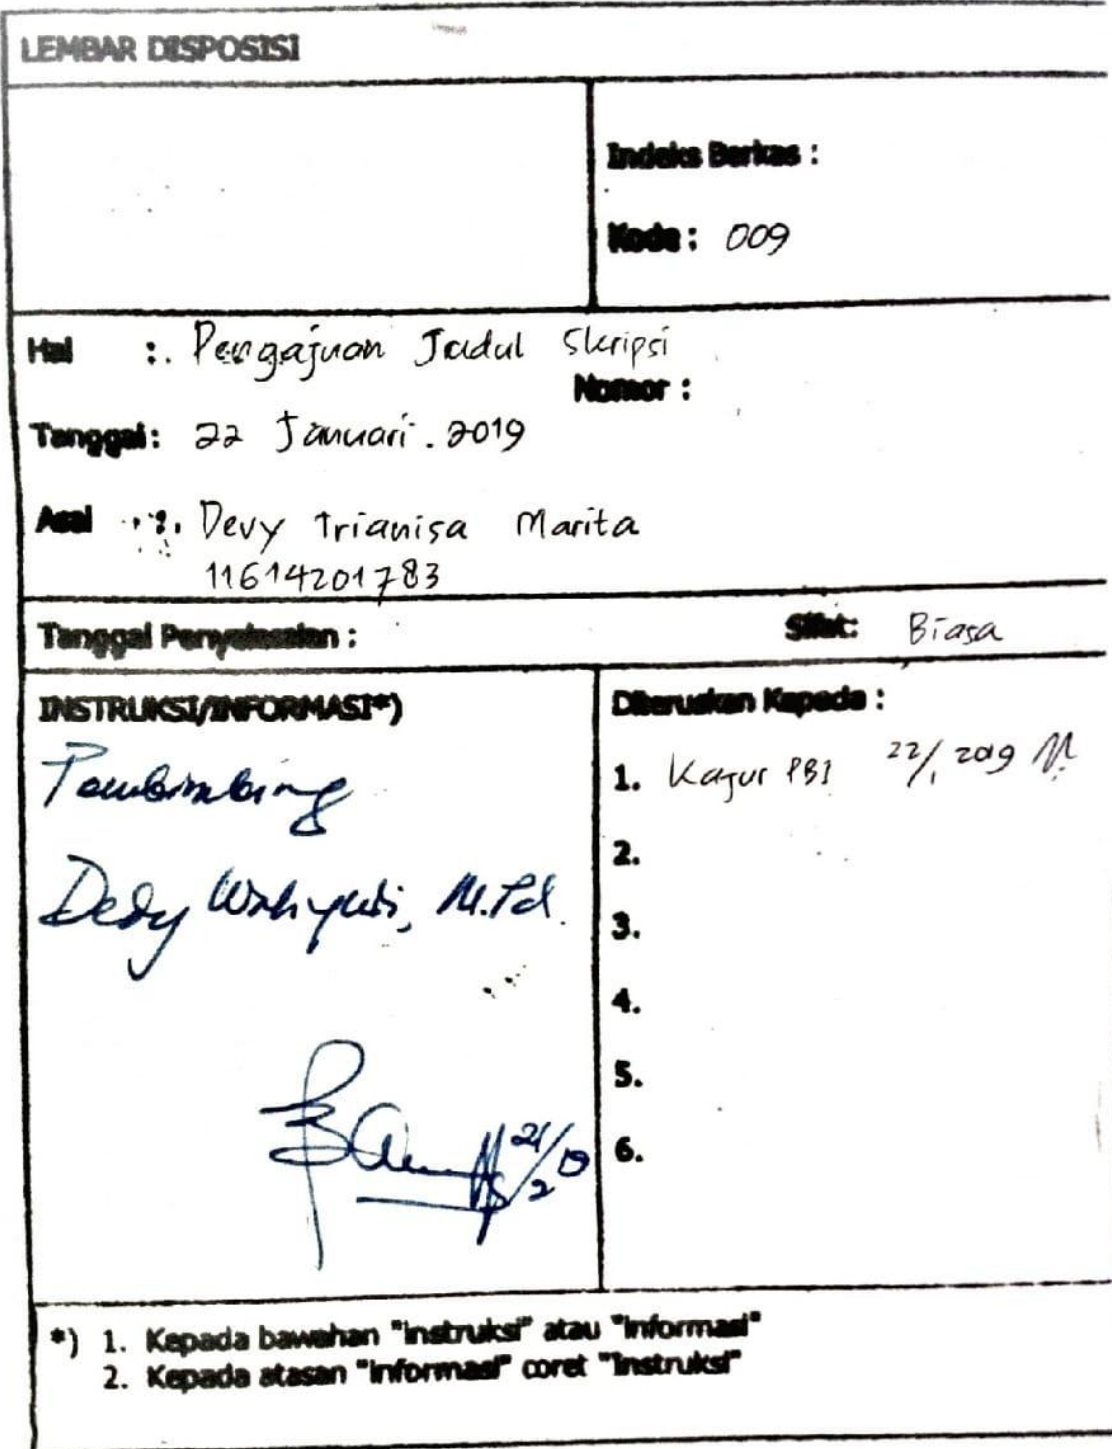 LEMBAR DISPOSISI
Indeks Berkas :
Kode : 009
Hal : Pengajuan Judul Skripsi
Nomor :
Tanggal : 22 Januari . 2019
Asal : Devy Trianisa Marita
11614201783
Tanggal Penyelesaian :
Sifat: Biasa
INSTRUKSI/INFORMASI*)
Pembimbing
Dedy Wahyudi, M.Pd.
21/2 19
Diteruskan Kepada :
1. Kajur PBI 22/1 2019
2.
3.
4.
5.
6.
*) 1. Kepada bawahan "instruksi" atau "informasi"
2. Kepada atasan "informasi" coret "instruksi"